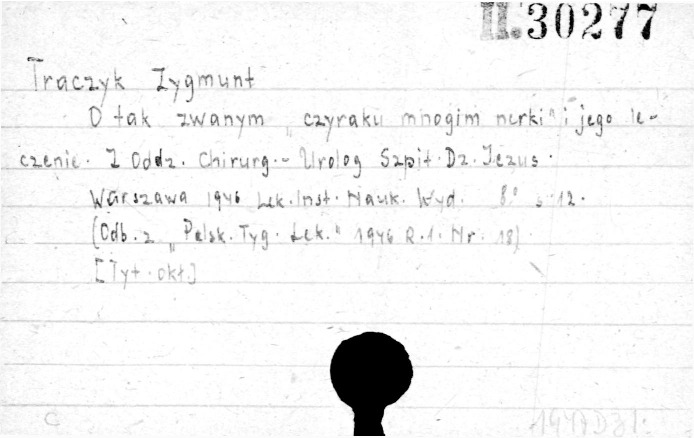 II.30277
Traczyk Zygmunt
O tak zwanym „czyraku mnogim nerki" i jego le-
czenie. Z Oddz. Chirurg.-Urolog Szpit. Dz. Jezus.
Warszawa 1946 Lek. Inst. Nauk. Wyd. 8° s. 12.
(Odb. z „Polsk. Tyg. Lek." 1946 R.1. Nr. 18)
[Tyt. okł.]
C